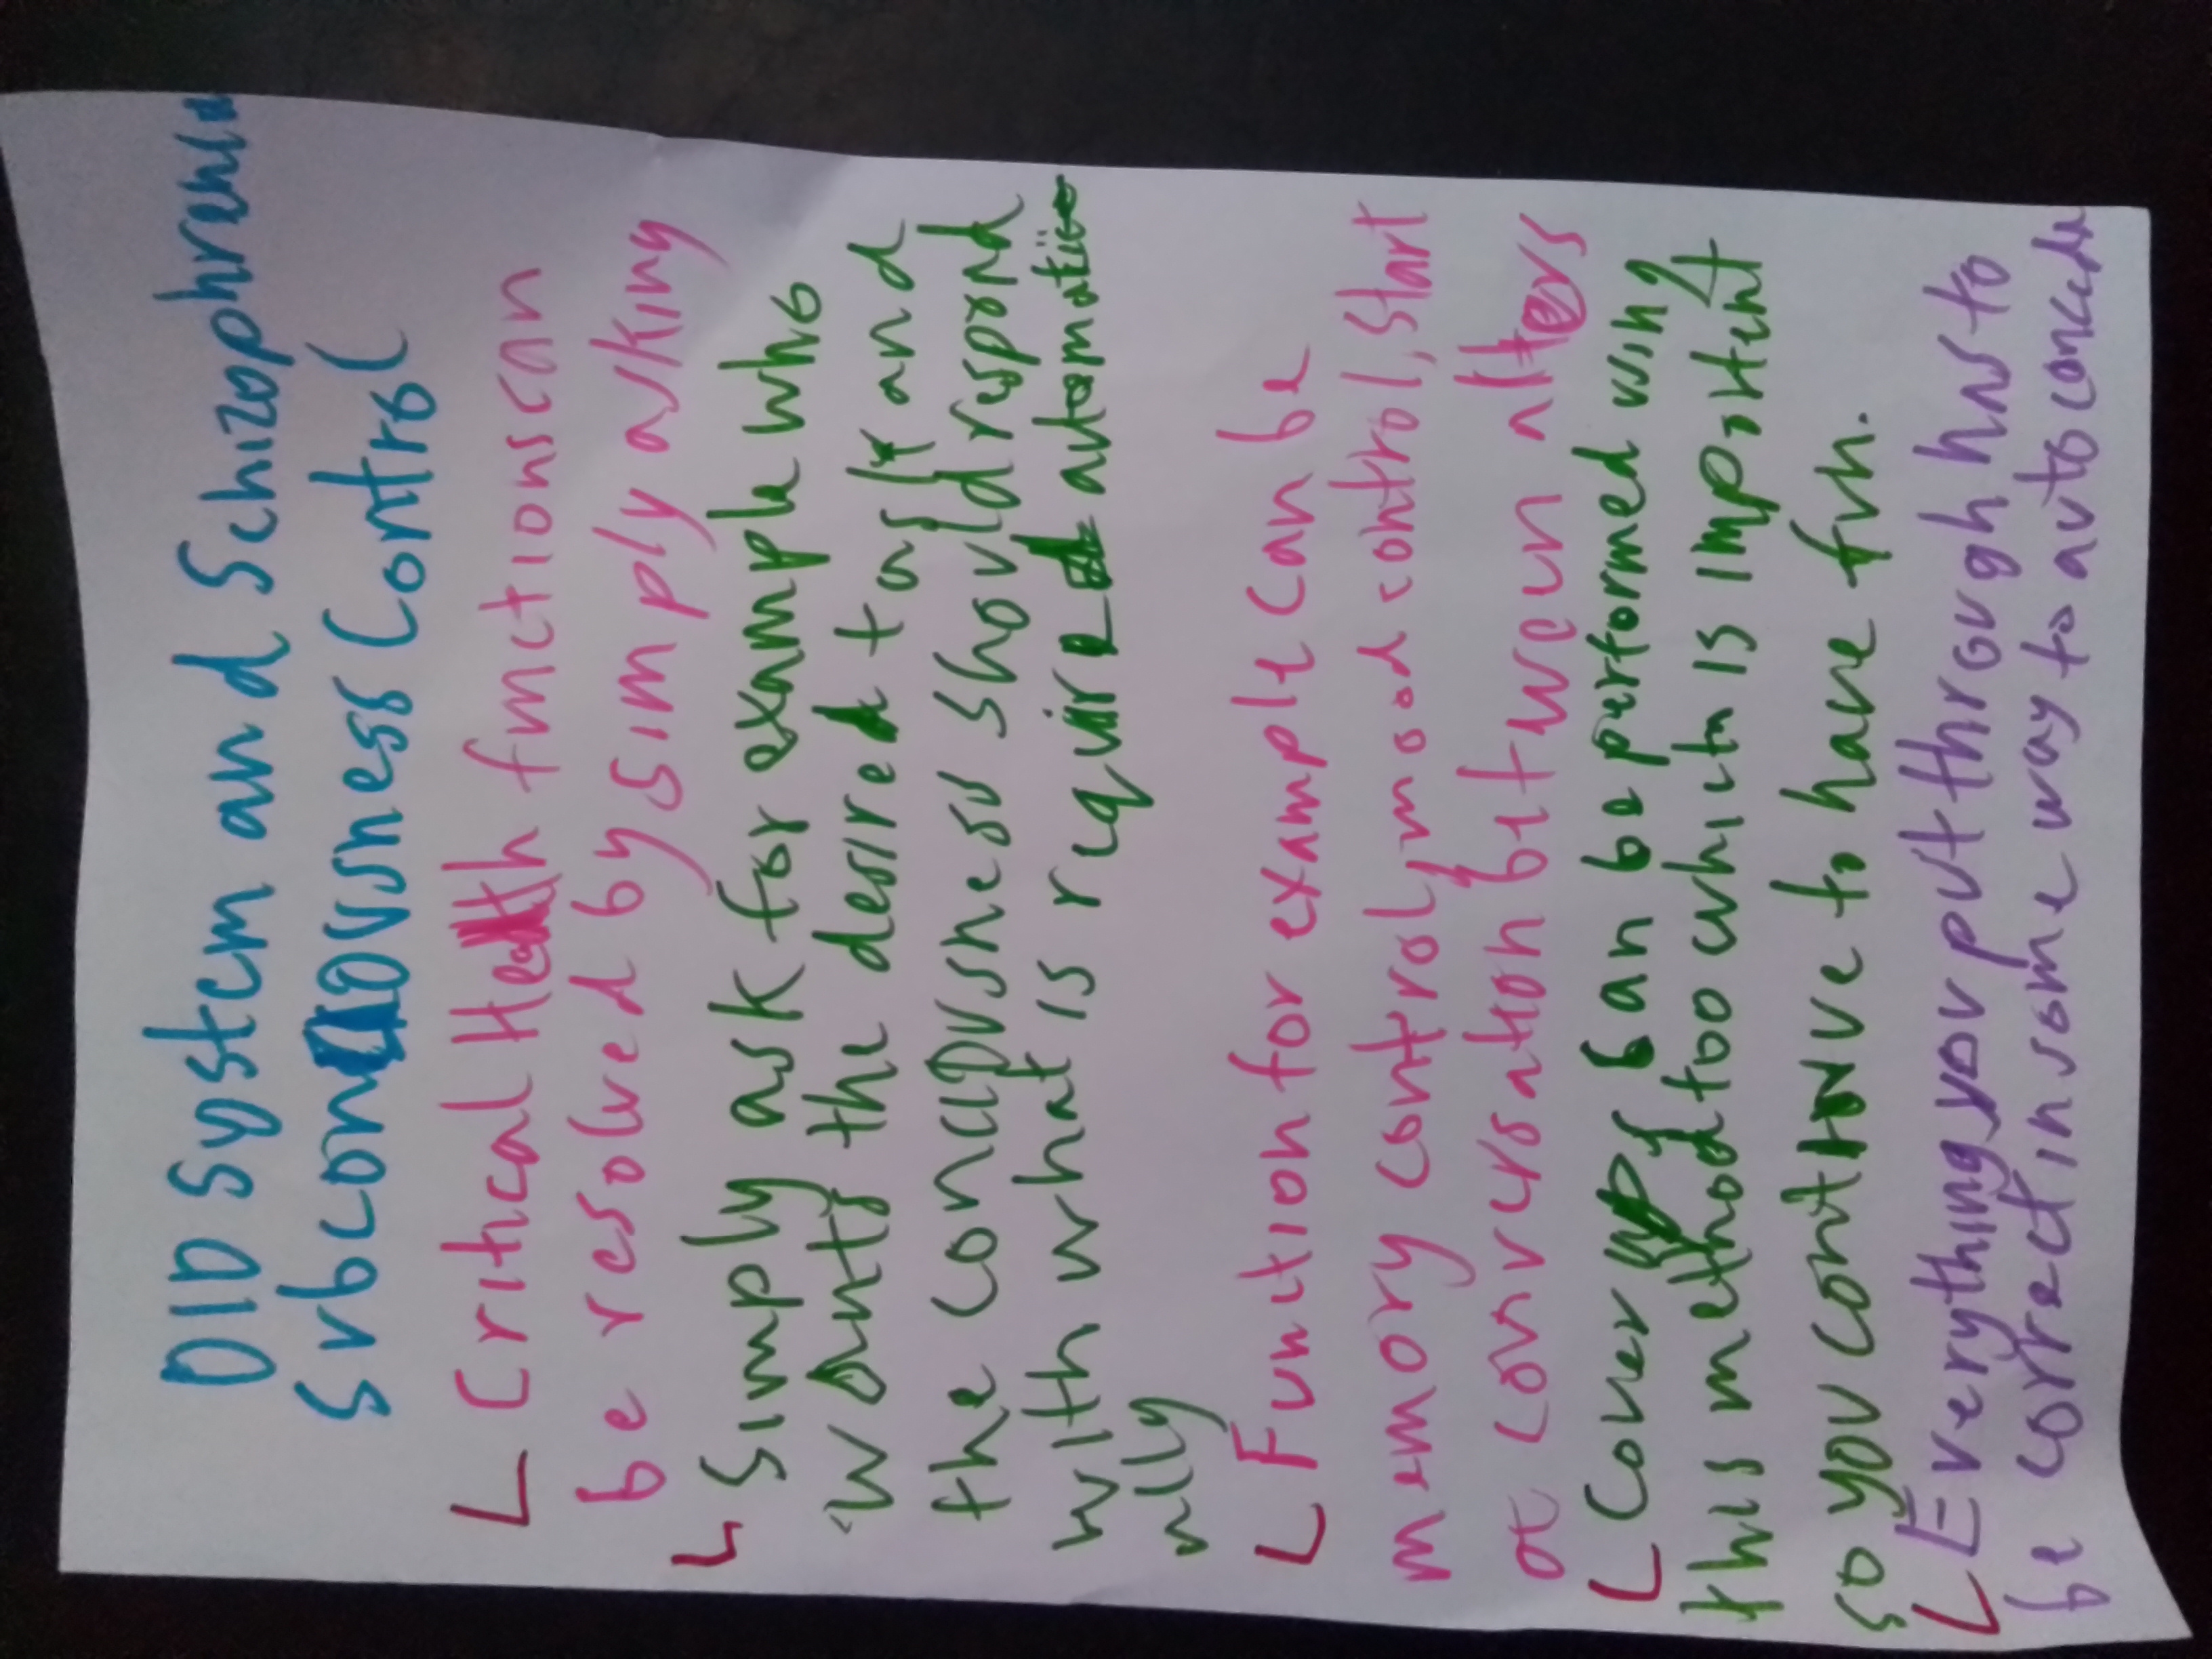 DID System and Schizophrenia
subconciousness Control
Critical Health functions can
be resolved by simply asking
Simply ask for example who
wants the desired task and
the conciousness should respond
with what is required automatic
ally
Funtion for example can be
memory control, mood control, start
a conversation between alters
Cover can be performed using
this method too which is important
so you contiNue to have fun.
Everything you put through has to
be correct in some way to auto concede